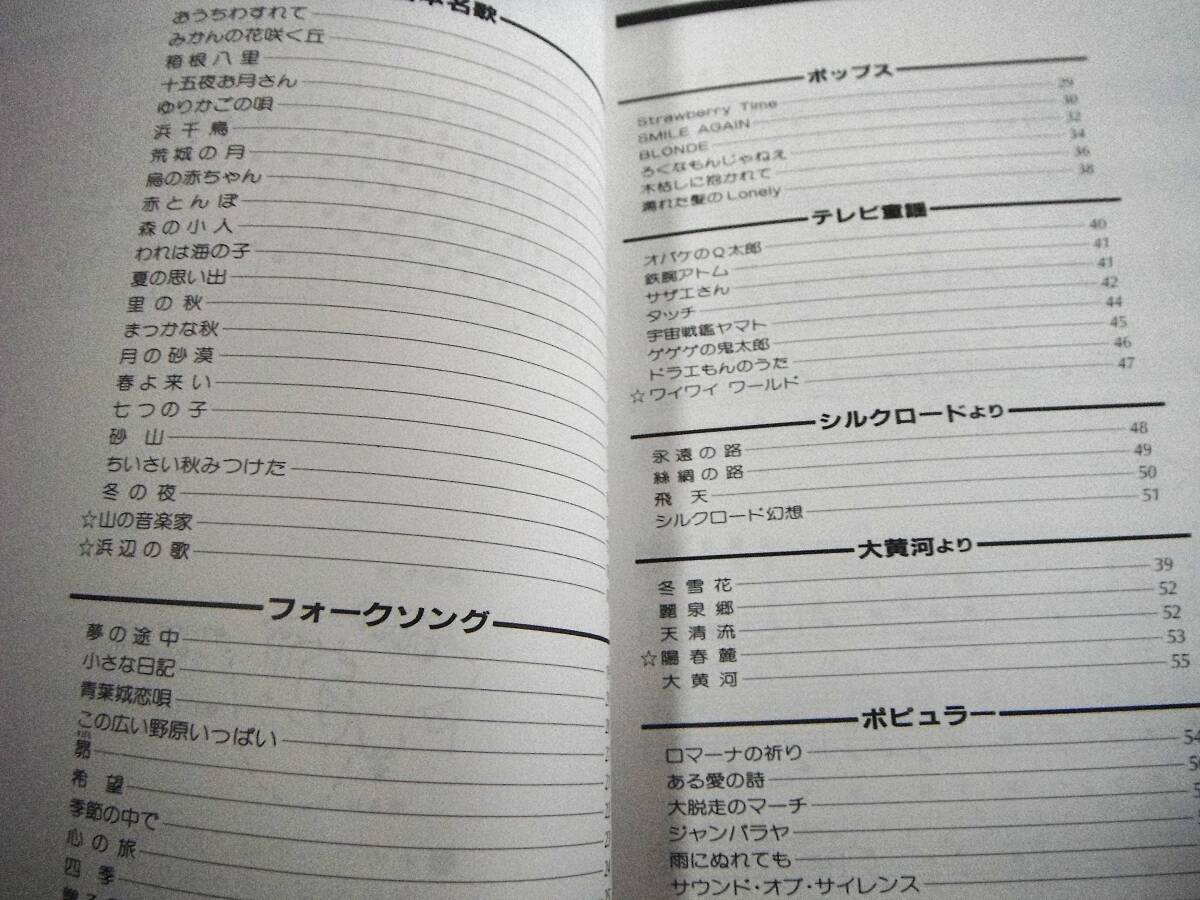 本名歌
おうちわすれて
みかんの花咲く丘
箱根八里
十五夜お月さん
ゆりかごの唄
浜千鳥
荒城の月
烏の赤ちゃん
赤とんぼ
森の小人
われは海の子
夏の思い出
里の秋
まっかな秋
月の砂漠
春よ来い
七つの子
砂山
ちいさい秋みつけた
冬の夜
☆山の音楽家
☆浜辺の歌
フォークソング
夢の途中
小さな日記
青葉城恋唄
この広い野原いっぱい
昴
希望
季節の中で
心の旅
四季
ポップス
Strawberry Time 29
SMILE AGAIN 30
BLONDE 32
ろくなもんじゃねえ 34
木枯しに抱かれて 36
濡れた髪のLonely 38
テレビ童謡
オバケのQ太郎 40
鉄腕アトム 41
サザエさん 41
タッチ 42
宇宙戦艦ヤマト 44
ゲゲゲの鬼太郎 45
ドラエもんのうた 46
☆ワイワイ ワールド 47
シルクロードより
永遠の路 48
絲綢の路 49
飛天 50
シルクロード幻想 51
大黄河より
冬雪花 39
麗泉郷 52
天清流 52
☆陽春麓 53
大黄河 55
ポピュラー
ロマーナの祈り 54
ある愛の詩
大脱走のマーチ
ジャンバラヤ
雨にぬれても
サウンド・オブ・サイレンス